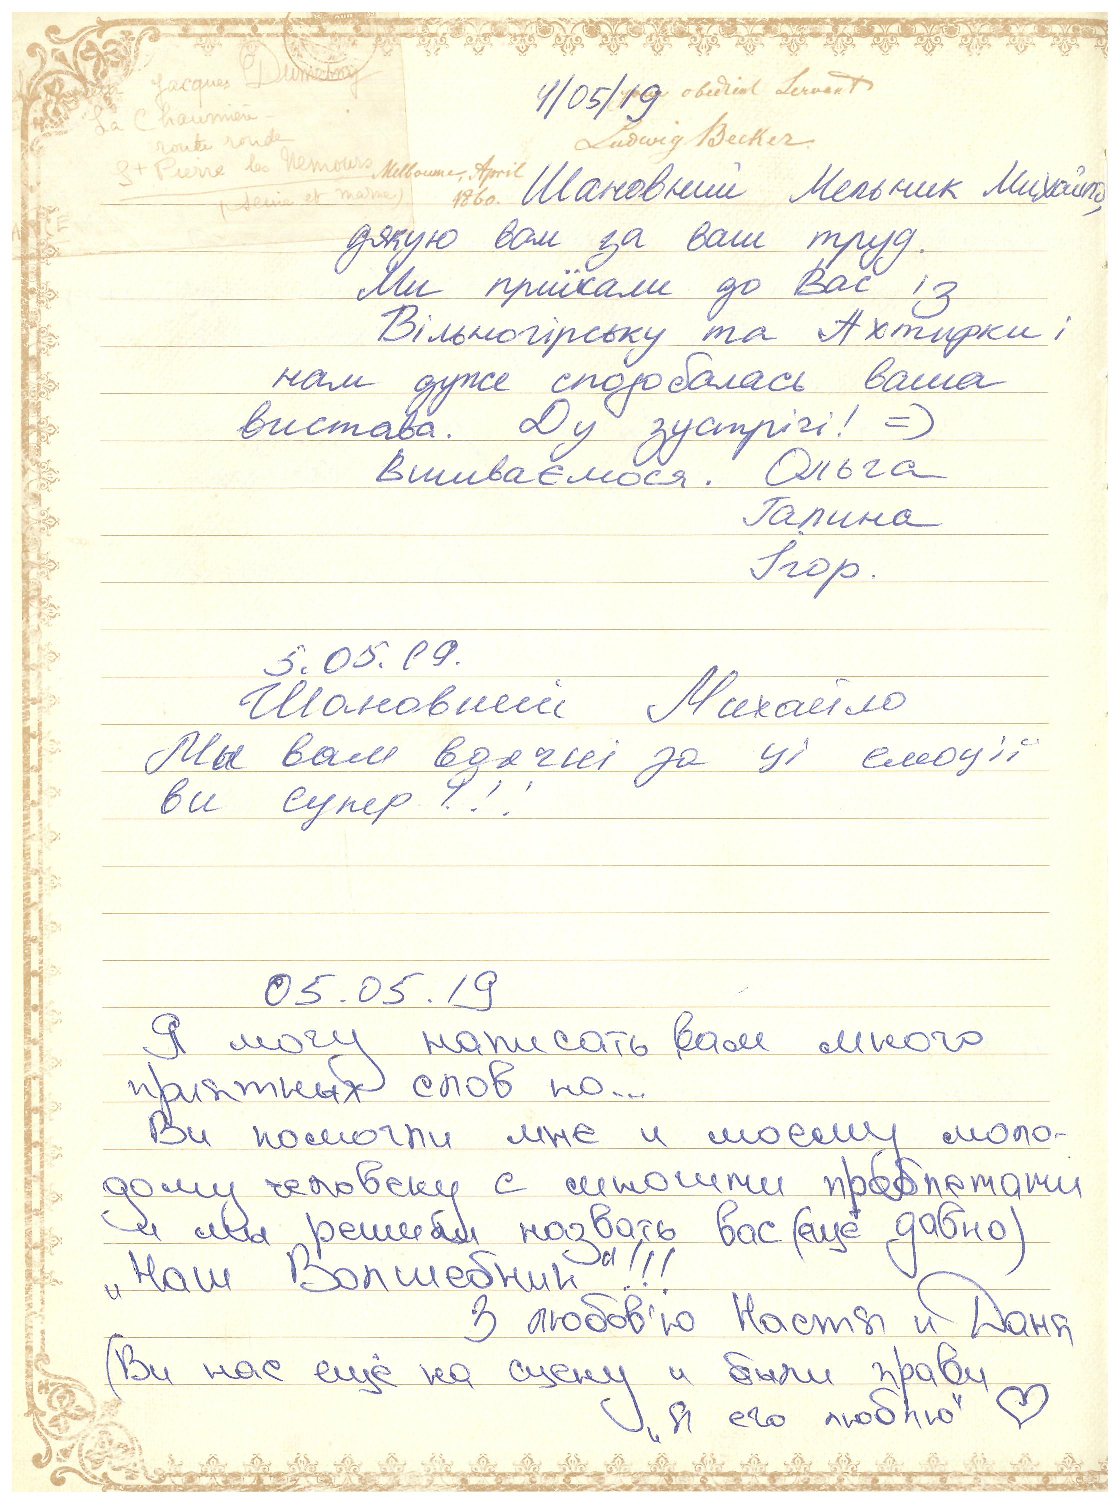 Jacques Dumesny
La Chaumière
route ronde
St Pierre les Nemours
(Seine et Marne)
your obedient Servant
Ludwig Becker.
Melbourne, April
1860.
4/05/19
Шановний Мельник Михайло,
дякую вам за ваш труд.
Ми приїхали до Вас із
Вільногірську та Ахтирки і
нам дуже сподобалась ваша
вистава. Ду зустрічі! =)
Вшиваємося. Ольга
Галина
Ігор.
5.05.19.
Шановний Михайло
Мы вам вдячні за ці ємоції
ви супер!!!
05.05.19
Я могу написать вам много
приятных слов но...
Ви помогли мне и моему моло-
дому человеку с многими проблемами
и мы решили назвать вас (ещё давно)
„Наш Волшебник"!!!
З любов'ю Настя и Даня
(Ви нас ещё на сцену и были прави
„я его люблю" ♡